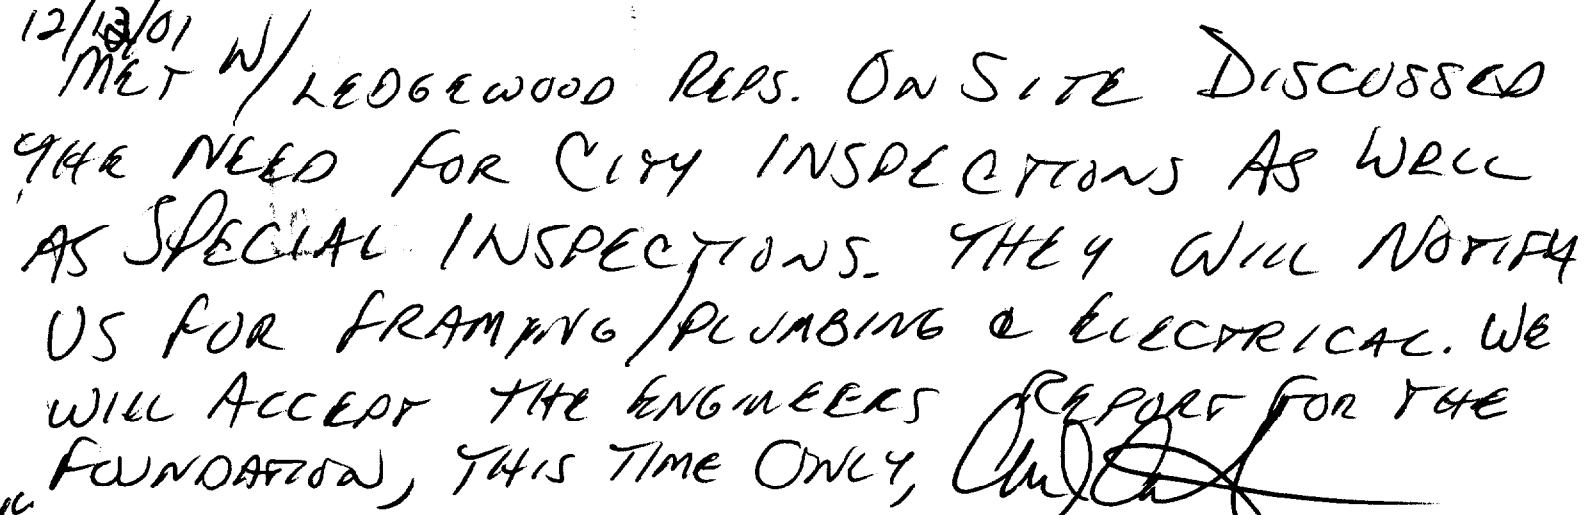 MET W/ LEDGEWOOD REPS. ON SITE DISCUSSED
THE NEED FOR CITY INSPECTIONS AS WELL
AS SPECIAL INSPECTIONS. THEY WILL NOTIFY
US FOR FRAMING/PLUMBING & ELECTRICAL. WE
WILL ACCEPT THE ENGINEERS REPORT FOR THE
FOUNDATION, THIS TIME ONLY,